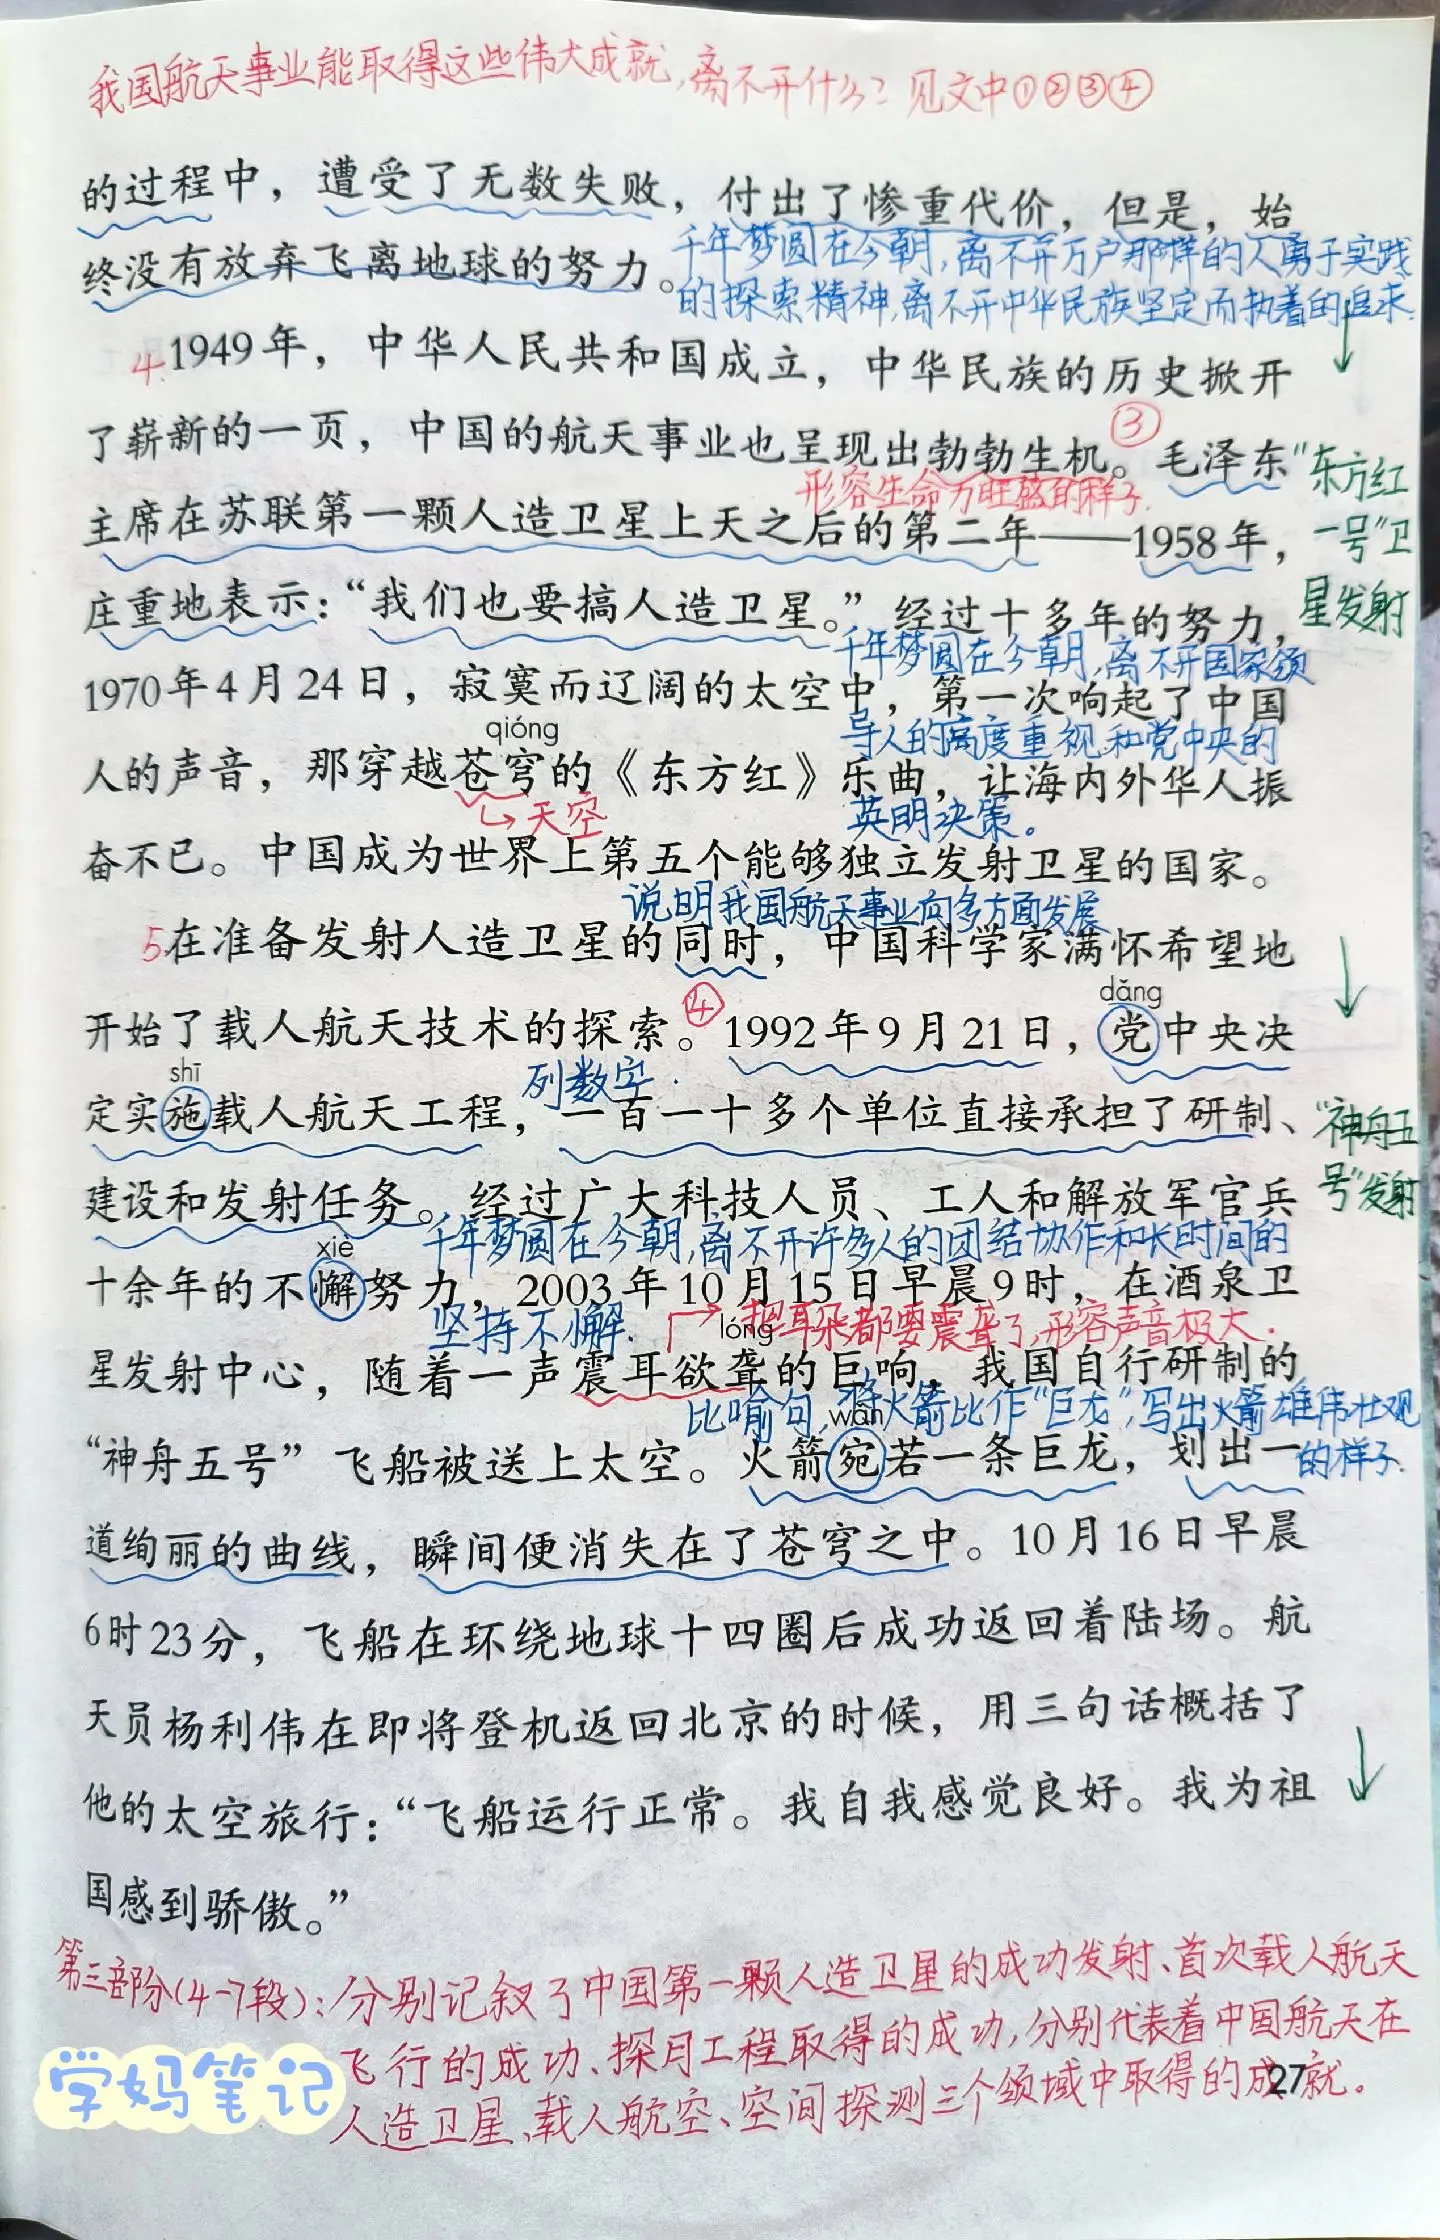 我国航天事业能取得这些伟大成就，离不开什么？见文中①②③④
的过程中，遭受了无数失败，付出了惨重代价，但是，始
千年梦圆在今朝，离不开万户那样的人勇于实践
终没有放弃飞离地球的努力。
的探索精神，离不开中华民族坚定而执着的追求.
4.1949年，中华人民共和国成立，中华民族的历史掀开
了崭新的一页，中国的航天事业也呈现出勃勃生机。③毛泽东
形容生命力旺盛的样子.
"东方红
一号"卫
星发射
主席在苏联第一颗人造卫星上天之后的第二年——1958年，
庄重地表示：“我们也要搞人造卫星。”经过十多年的努力，
千年梦圆在今朝，离不开国家领
1970年4月24日，寂寞而辽阔的太空中，第一次响起了中国
qióng
导人的高度重视和党中央的
人的声音，那穿越苍穹的《东方红》乐曲，让海内外华人振
天空
英明决策。
奋不已。中国成为世界上第五个能够独立发射卫星的国家。
说明我国航天事业向多方面发展
5.在准备发射人造卫星的同时，中国科学家满怀希望地
dǎng
开始了载人航天技术的探索。④1992年9月21日，党中央决
shī
列数字.
定实施载人航天工程，一百一十多个单位直接承担了研制、
"神舟五
号"发射
建设和发射任务。经过广大科技人员、工人和解放军官兵
千年梦圆在今朝，离不开许多人的团结协作和长时间的
xiè
十余年的不懈努力，2003年10月15日早晨9时，在酒泉卫
坚持不懈.
把耳朵都要震聋了，形容声音极大.
lóng
星发射中心，随着一声震耳欲聋的巨响，我国自行研制的
比喻句，将火箭比作"巨龙"，写出火箭雄伟壮观
的样子.
wǎn
“神舟五号”飞船被送上太空。火箭宛若一条巨龙，划出一
道绚丽的曲线，瞬间便消失在了苍穹之中。10月16日早晨
6时23分，飞船在环绕地球十四圈后成功返回着陆场。航
天员杨利伟在即将登机返回北京的时候，用三句话概括了
他的太空旅行：“飞船运行正常。我自我感觉良好。我为祖
国感到骄傲。”
第三部分(4-7段)：分别记叙了中国第一颗人造卫星的成功发射、首次载人航天
飞行的成功、探月工程取得的成功，分别代表着中国航天在
人造卫星、载人航空、空间探测三个领域中取得的成就.
27
学妈笔记